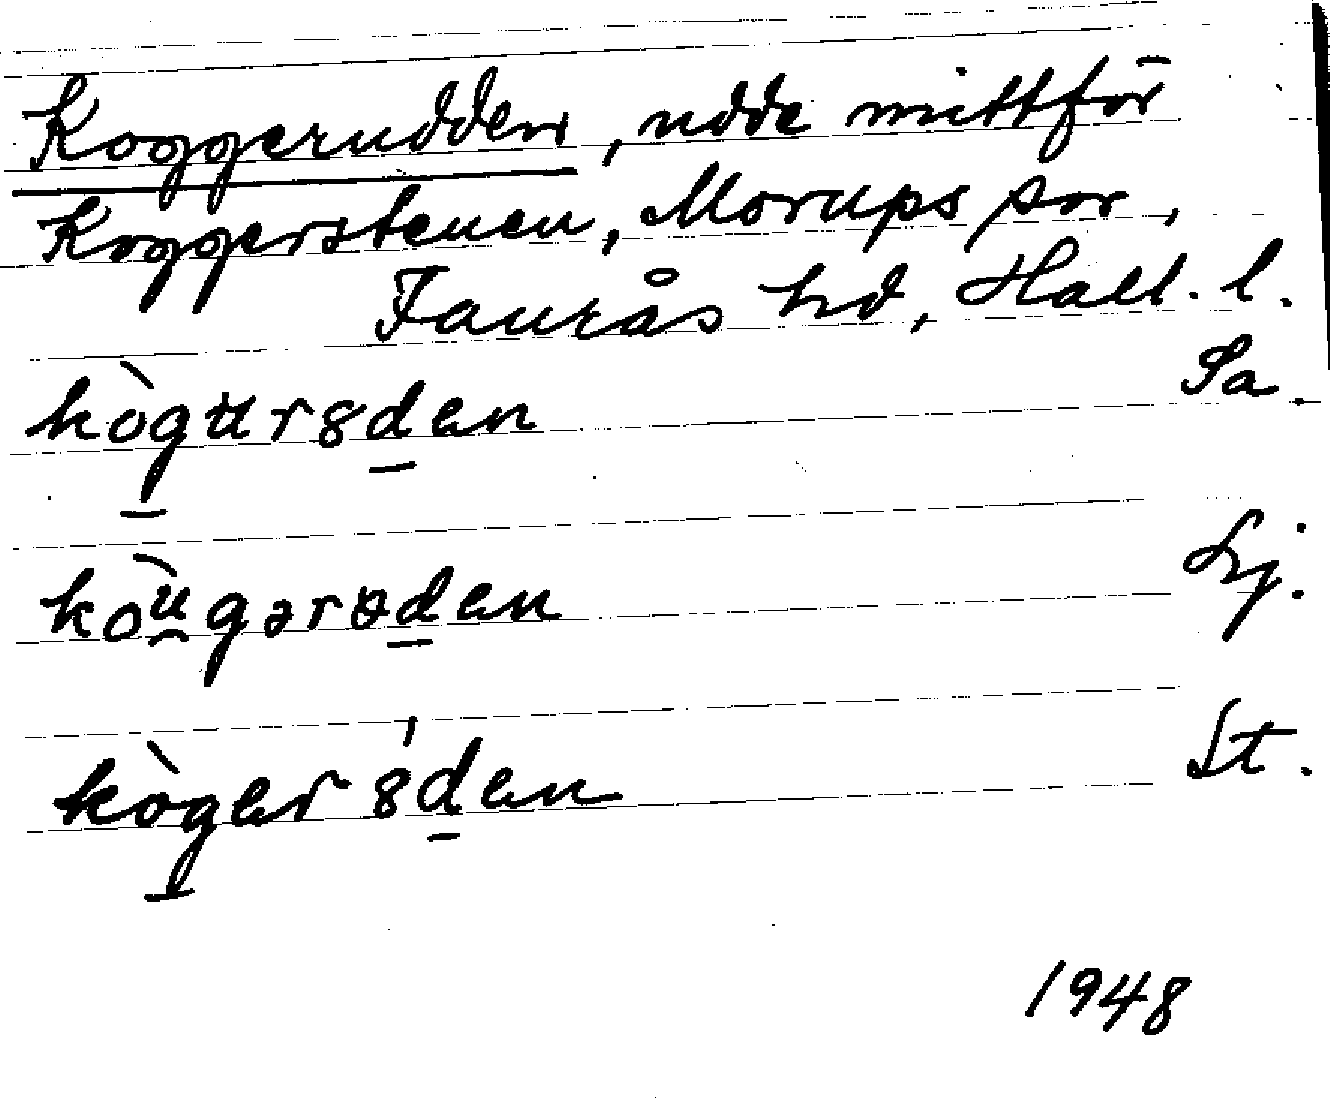 Koggerudden, udde mittför
Koggerstenen, Morups sor,
Faurås hd, Hall. l.
kògu̇rꝏ8d̲en Sa.
kòu̯gərɵd̲en Lj.
kòg̲er8́d̲en St.
1948